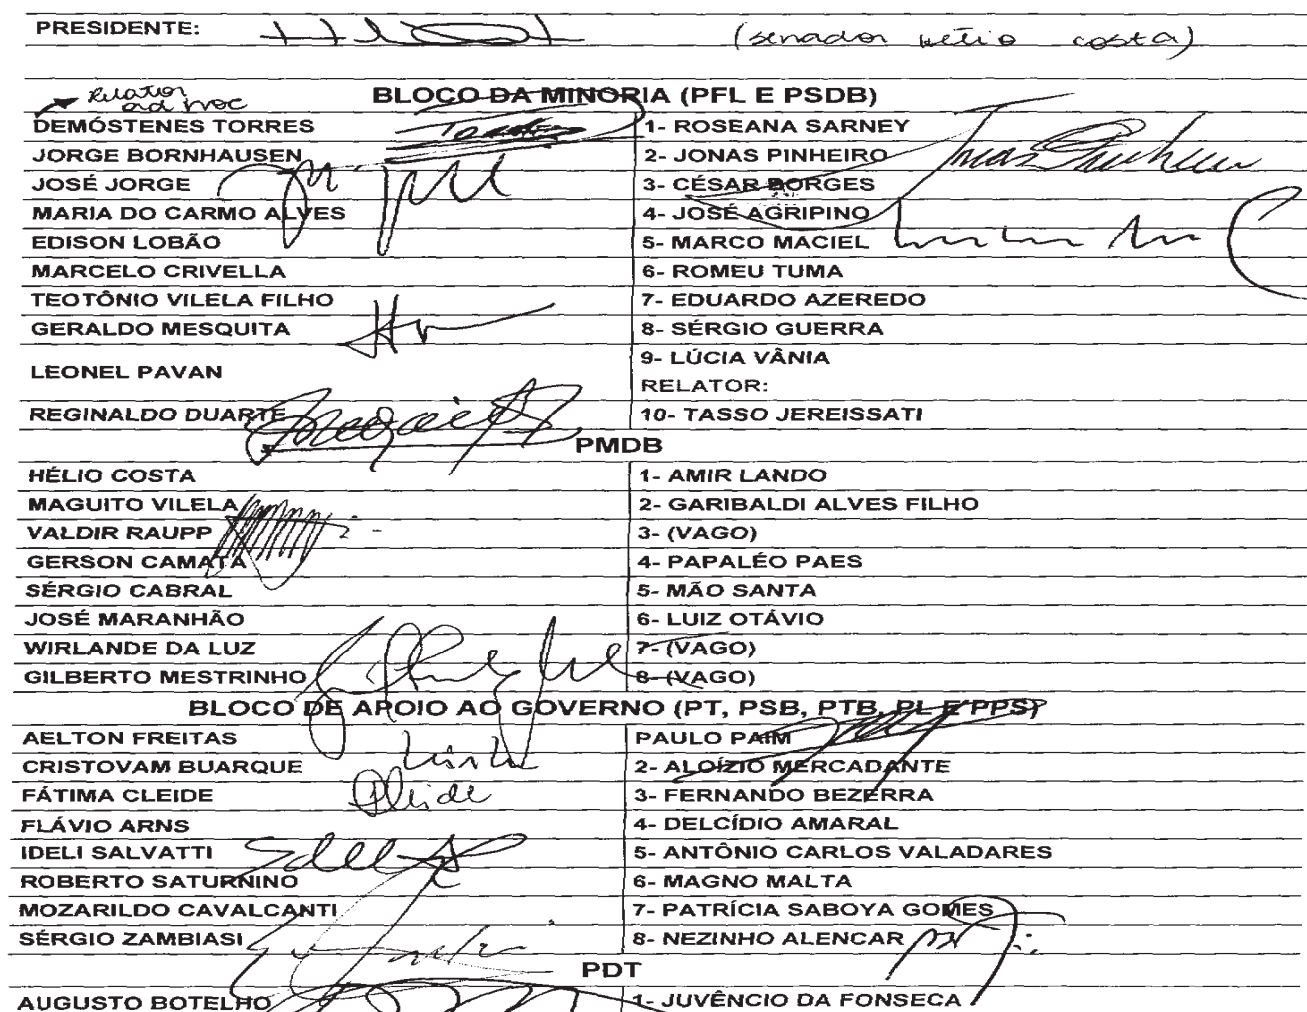 PRESIDENTE: (senador Hélio Costa)
Relator
ad hoc
BLOCO DA MINORIA (PFL E PSDB)
DEMÓSTENES TORRES 1- ROSEANA SARNEY
JORGE BORNHAUSEN 2- JONAS PINHEIRO Jonas Pinheiro
JOSÉ JORGE 3- CÉSAR BORGES
MARIA DO CARMO ALVES 4- JOSÉ AGRIPINO
EDISON LOBÃO 5- MARCO MACIEL
MARCELO CRIVELLA 6- ROMEU TUMA
TEOTÔNIO VILELA FILHO 7- EDUARDO AZEREDO
GERALDO MESQUITA 8- SÉRGIO GUERRA
LEONEL PAVAN 9- LÚCIA VÂNIA
RELATOR:
REGINALDO DUARTE 10- TASSO JEREISSATI
PMDB
HÉLIO COSTA 1- AMIR LANDO
MAGUITO VILELA 2- GARIBALDI ALVES FILHO
VALDIR RAUPP 3- (VAGO)
GERSON CAMATA 4- PAPALÉO PAES
SÉRGIO CABRAL 5- MÃO SANTA
JOSÉ MARANHÃO 6- LUIZ OTÁVIO
WIRLANDE DA LUZ 7- (VAGO)
GILBERTO MESTRINHO 8- (VAGO)
BLOCO DE APOIO AO GOVERNO (PT, PSB, PTB, PL E PPS)
AELTON FREITAS PAULO PAIM
CRISTOVAM BUARQUE 2- ALOÍZIO MERCADANTE
FÁTIMA CLEIDE Cleide 3- FERNANDO BEZERRA
FLÁVIO ARNS 4- DELCÍDIO AMARAL
IDELI SALVATTI 5- ANTÔNIO CARLOS VALADARES
ROBERTO SATURNINO 6- MAGNO MALTA
MOZARILDO CAVALCANTI 7- PATRÍCIA SABOYA GOMES
SÉRGIO ZAMBIASI 8- NEZINHO ALENCAR
PDT
AUGUSTO BOTELHO 1- JUVÊNCIO DA FONSECA